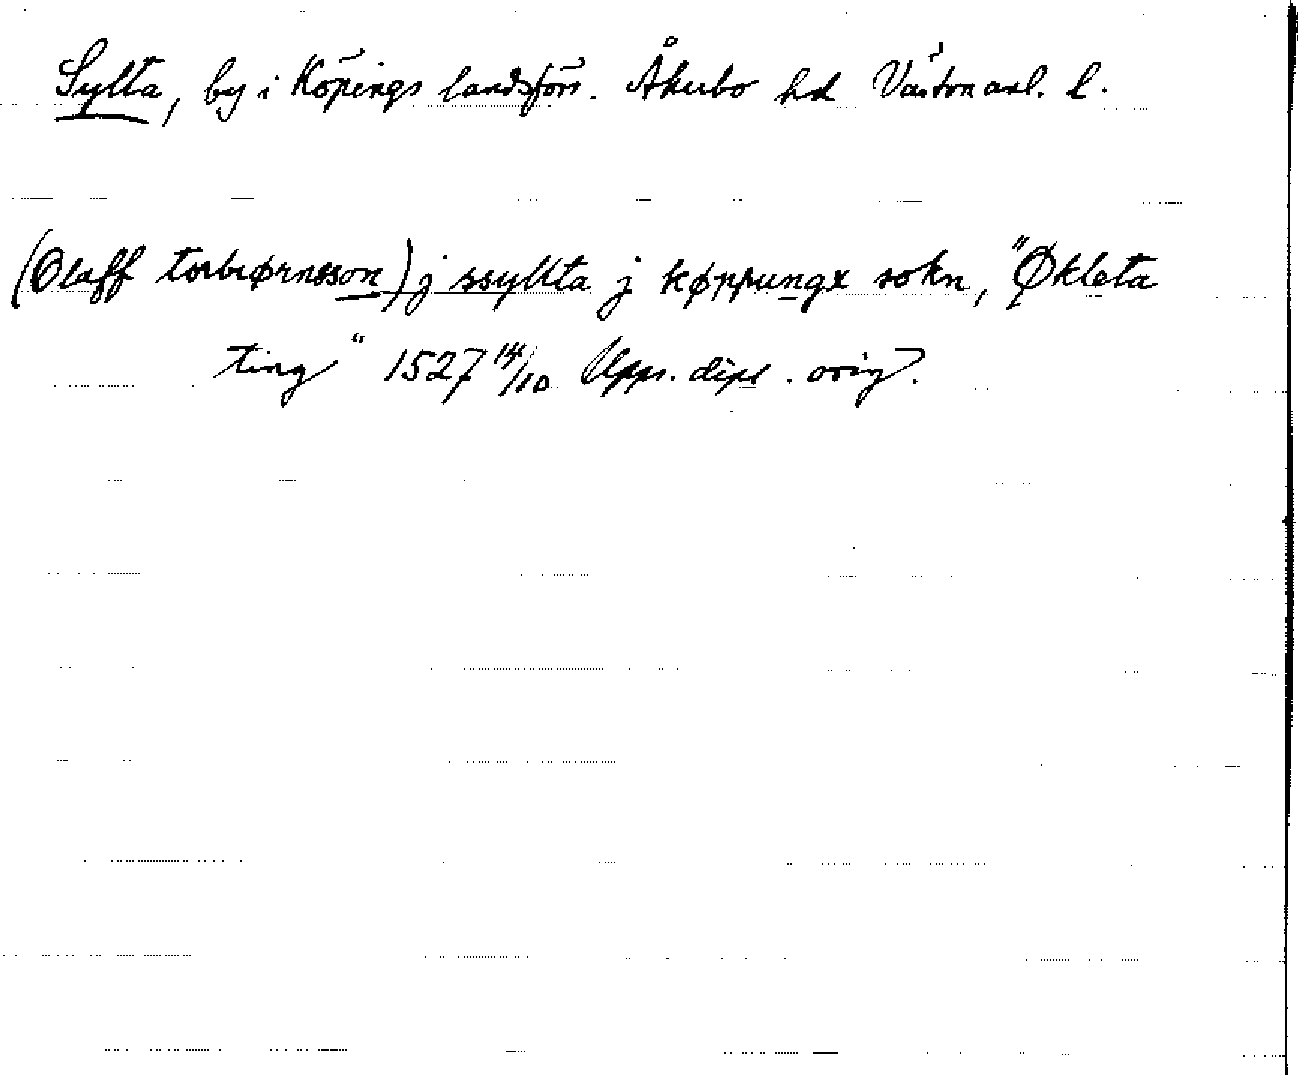 Sylta, by i Köpings landsförs. Åkerbo hd Västmanl. l.
(Olaff torbiørnsson) j ssyllta j køppunge sokn, "Økleta
ting" 1527 14/10 Upps. dipl. orig.